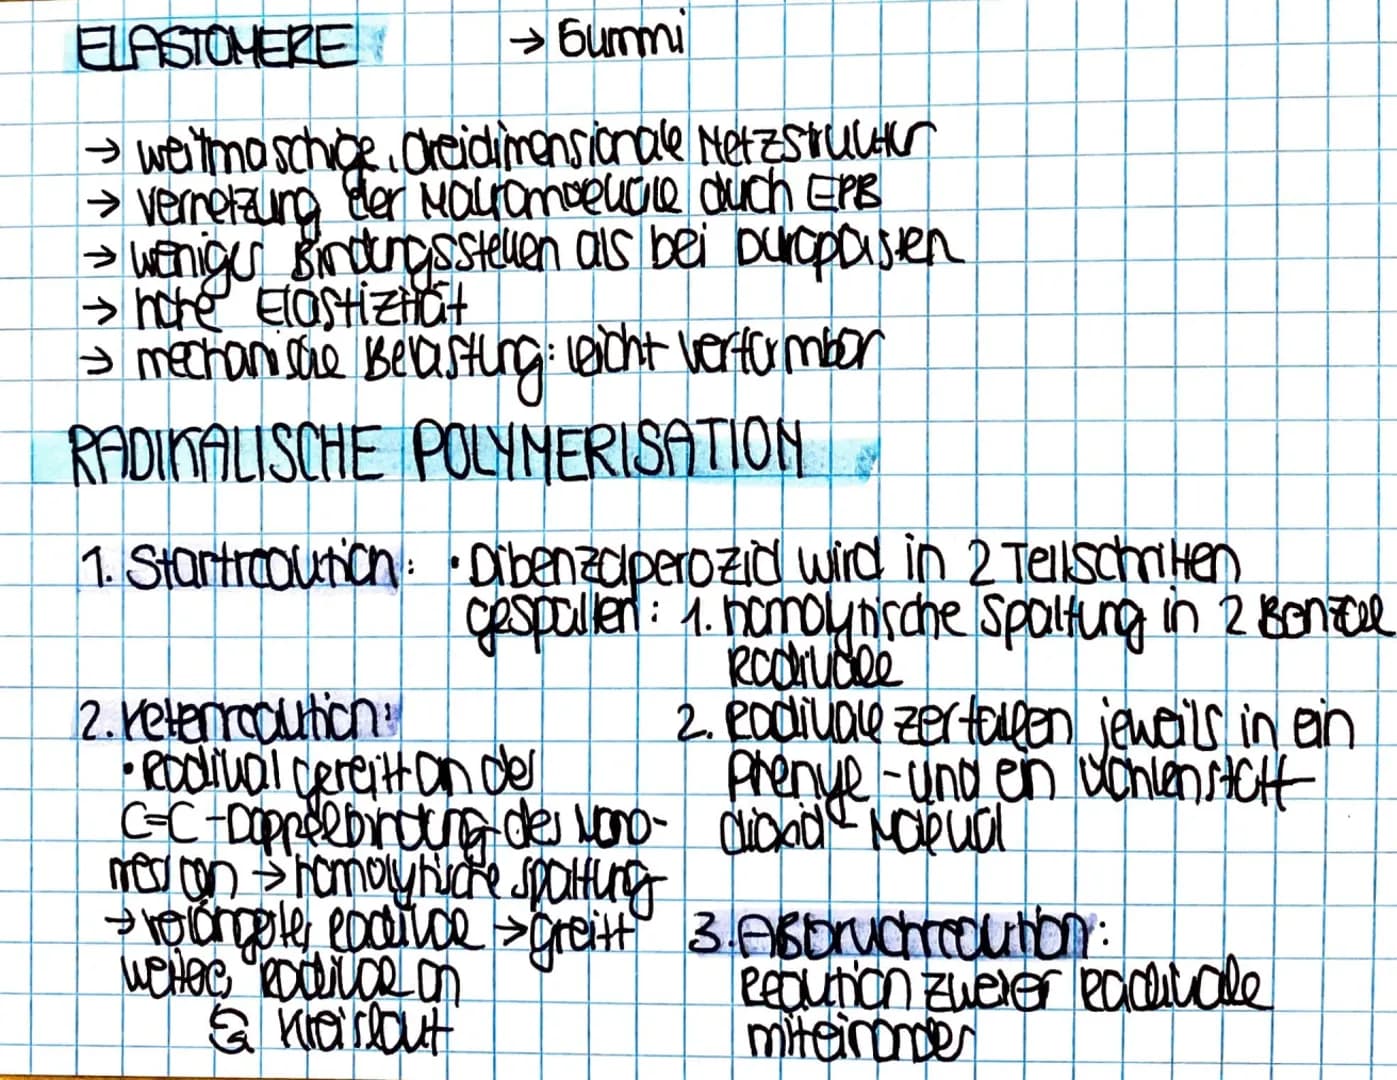 ELASTOMERE → Gummi
→ weitmaschige, dreidimensionale Netzstruktur
→ Vernetzung der Makromoleküle duch EPB
→ weniger Bindungsstellen als bei Duroplasten
→ hohe Elastizität
→ mechanische Belastung: leicht verformbar
RADIKALISCHE POLYMERISATION
1. Startreaktion: • Dibenzolperoxid wird in 2 Teilschritten
gespalten: 1. homolytische Spaltung in 2 Benzol
Radikale
2. Radikale zerfallen jeweils in ein
Phenyl- und ein Kohlenstoff
dioxid-Molekül
2. Kettenreaktion:
• Radikal greift an der
C=C-Doppelbindung des Mono-
mers an → homolytische Spaltung
→ verlängerte Radikale → greift
weitere Radikale an
Kreislauf
3. Abbruchreaktion:
Reaktion zweier Radikale
miteinander